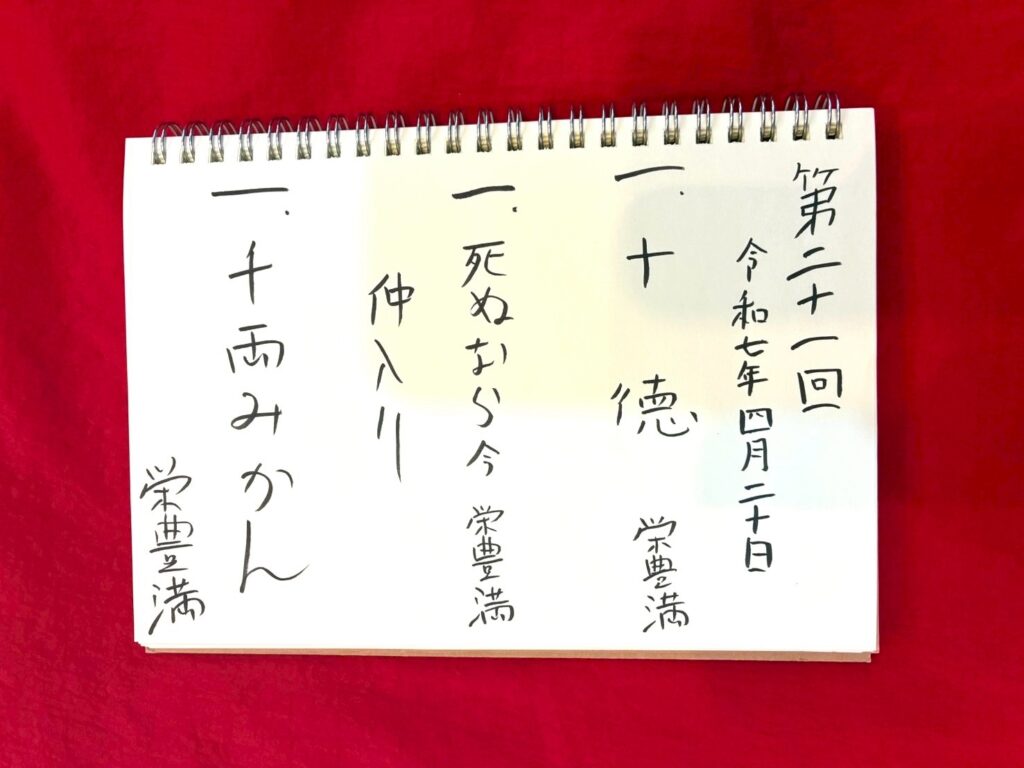 第二十一回
令和七年四月二十日
一. 十徳 栄豊満
一. 死ぬなら今 栄豊満
仲入り
一. 千両みかん
栄豊満